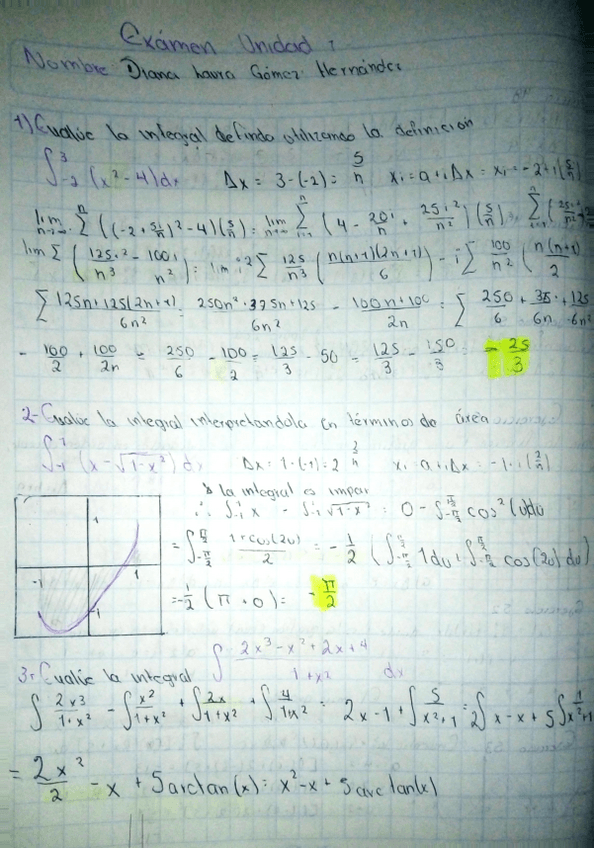 Exámen Unidad 1
Nombre Diana Laura Gómez Hernández
1) Evalúe la integral definda utilizando la definición
∫₋₂³ (x² - 4)dx Δx = 3-(-2) = 5/n xi = a+iΔx = xi = -2+i(5/n)
lim n→∞ Σ ((-2 + 5i/n)² - 4)(5/n) = lim n→∞ Σ (4 - 20i/n + 25i²/n²)(5/n)
lim Σ (125i²/n³ - 100i/n²) = lim i² Σ 125/n³ (n(n+1)(2n+1)/6) - i Σ 100/n² (n(n+1)/2
Σ 125n+125(2n+1)/6n² = 250n²+375n+125/6n² - 100n+100/2n = Σ 250/6 + 35/6n + 125/6n²
- 100/2 + 100/2n = 250/6 - 100/2 = 125/3 - 50 = 125/3 - 150/3 = - 25/3
2- Evalúe la integral interpretandola en términos de área
∫₋₁¹ (x - √1-x²) dx Δx = 1-(-1) = 2 2/n xi = a+iΔx = -1+i(2/n)
la integral es impar
∴ ∫₋₁¹ x - ∫₋₁¹ √1-x² = 0 - ∫ cos²(u)du
= ∫ 1+cos(2u)/2 = - 1/2 (∫ 1du + ∫ cos(2u)du)
= -1/2 (π + 0) = - π/2
1
-1 1
-1
3- Evalúe la integral ∫ 2x³-x²+2x+4/1+x² dx
∫ 2x³/1+x² - ∫ x²/1+x² + ∫ 2x/1+x² + ∫ 4/1+x² = 2x-1+∫ 5/x²+1 = 2∫x-x+5∫ 1/x²+1
= 2x²/2 - x + 5arctan(x) = x²-x+5arctan(x)